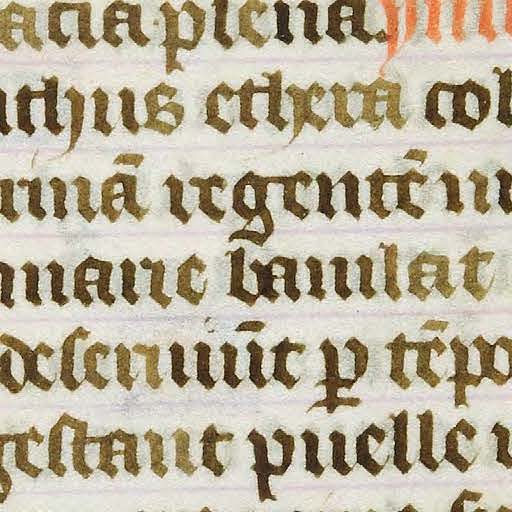 acia·plena.
thus ethera col
inā regentē m
marie baiulat
deseruiūt ꝑ tēpo
gestant puelle v